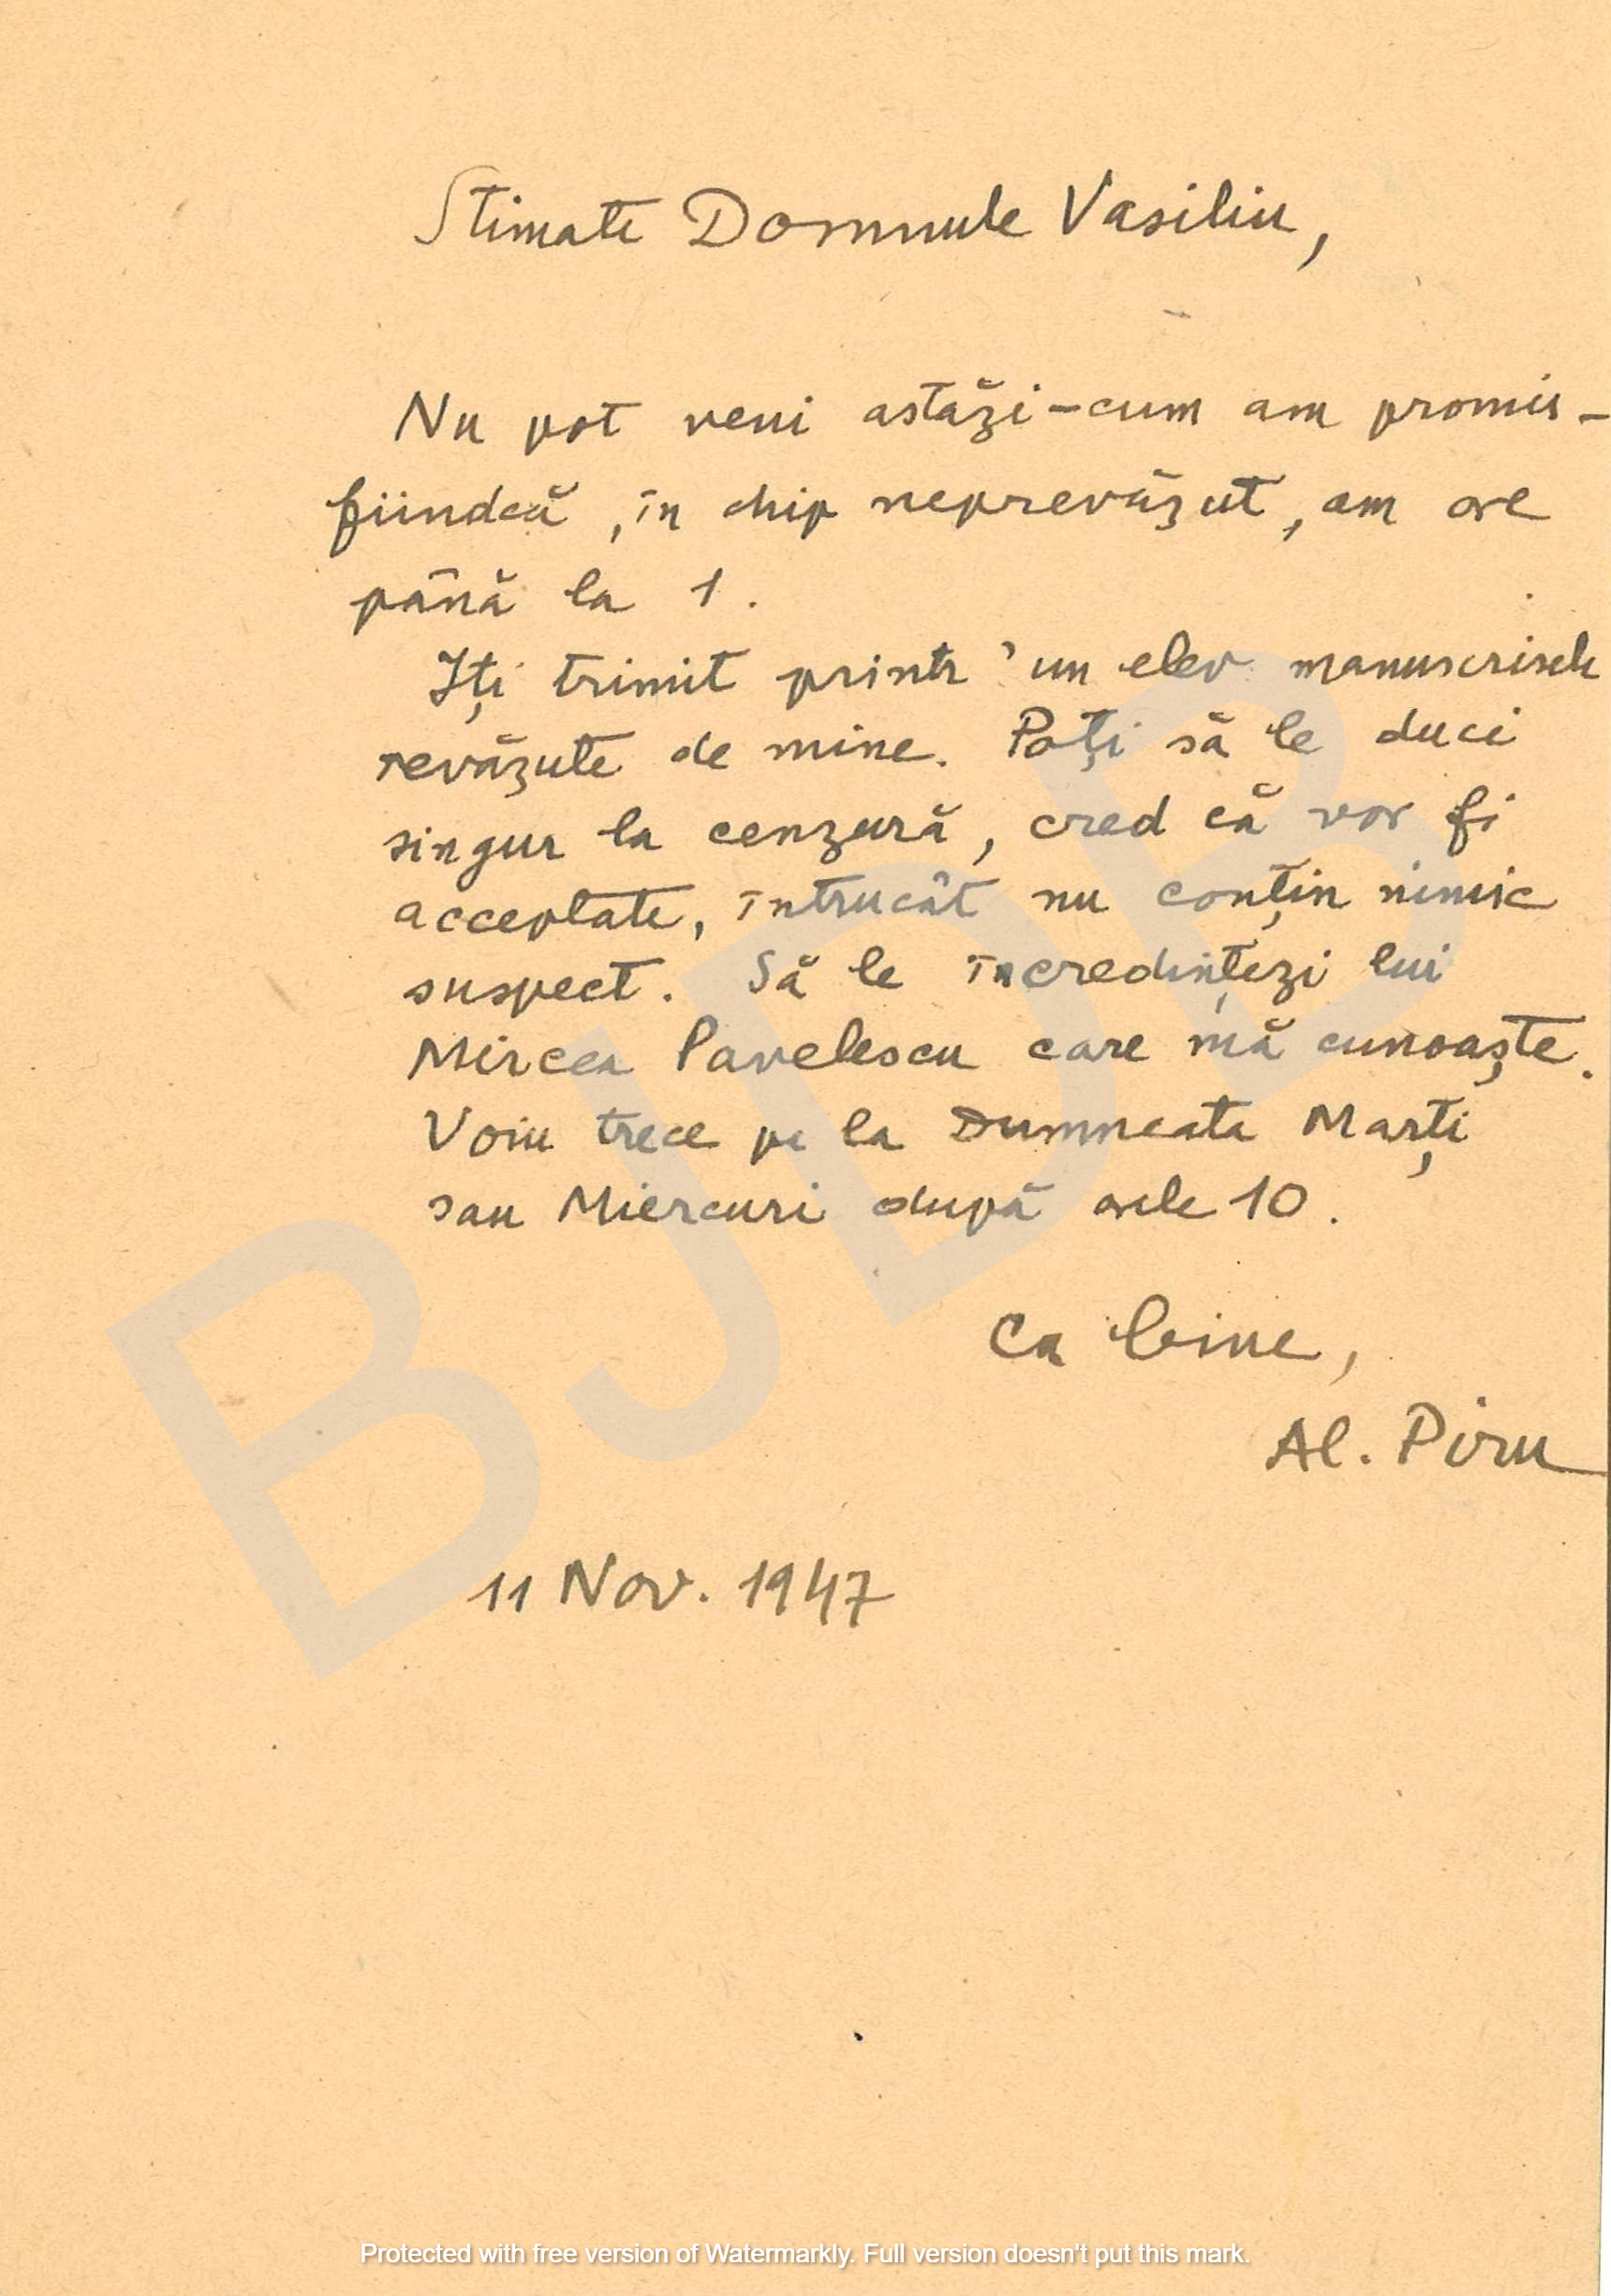 Stimate Domnule Vasiliu,
Nu pot veni astăzi - cum am promis -
fiindcă, în chip neprevăzut, am ore
până la 1.
Iți trimit printr'un elev manuscrisele
revăzute de mine. Poți să le duci
singur la cenzură, cred că vor fi
acceptate, întrucât nu conțin nimic
suspect. Să le încredințezi lui
Mircea Pavelescu care mă cunoaște.
Voiu trece pe la Dumneata Marți
sau Miercuri după orele 10.
Cu bine,
Al. Piru
11 Nov. 1947
BJDB
Protected with free version of Watermarkly. Full version doesn't put this mark.